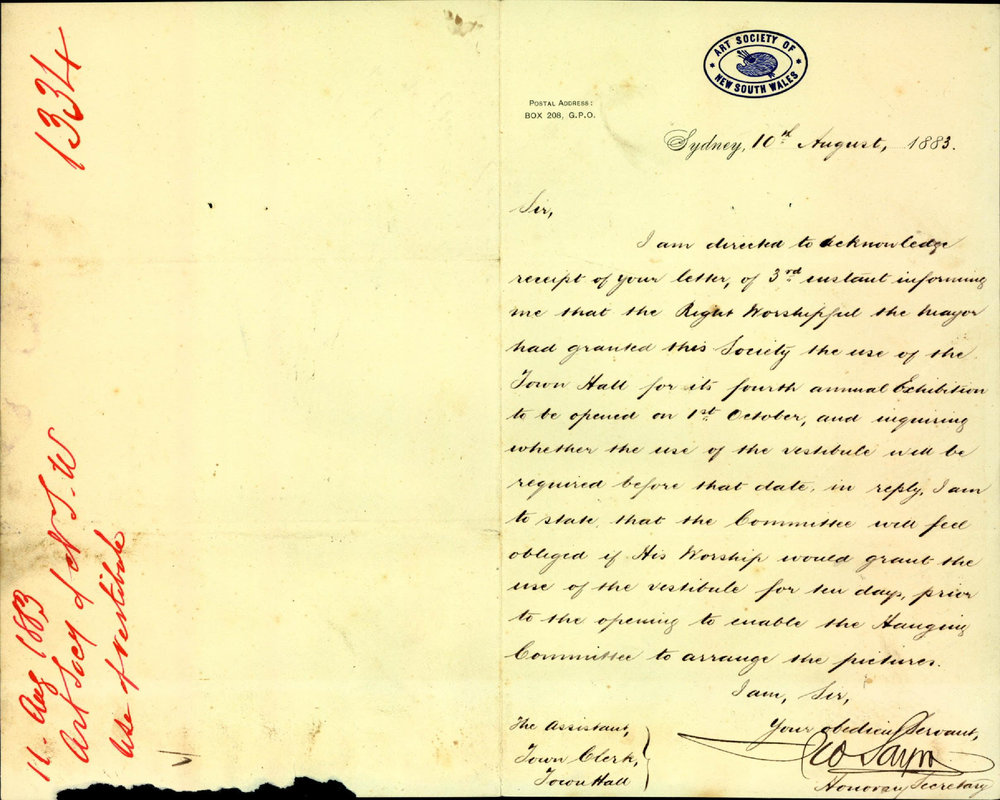 1334
11. Aug 1883
Art Socy of N.S.W
Use of Vestibule
ART SOCIETY OF
NEW SOUTH WALES
POSTAL ADDRESS:
BOX 208, G.P.O.
Sydney, 10th August, 1883.
Sir,
I am directed to acknowledge
receipt of your letter, of 3rd instant informing
me that the Right Worshipful the Mayor
had granted this Society the use of the
Town Hall for its fourth annual Exhibition
to be opened on 1st October, and inquiring
whether the use of the vestibule will be
required before that date, in reply, I am
to state that the Committee will feel
obliged if His Worship would grant the
use of the vestibule for ten days, prior
to the opening to enable the Hanging
Committee to arrange the pictures.
I am, Sir,
Your obedient Servant,
Honorary Secretary
The Assistant,
Town Clerk,
Town Hall